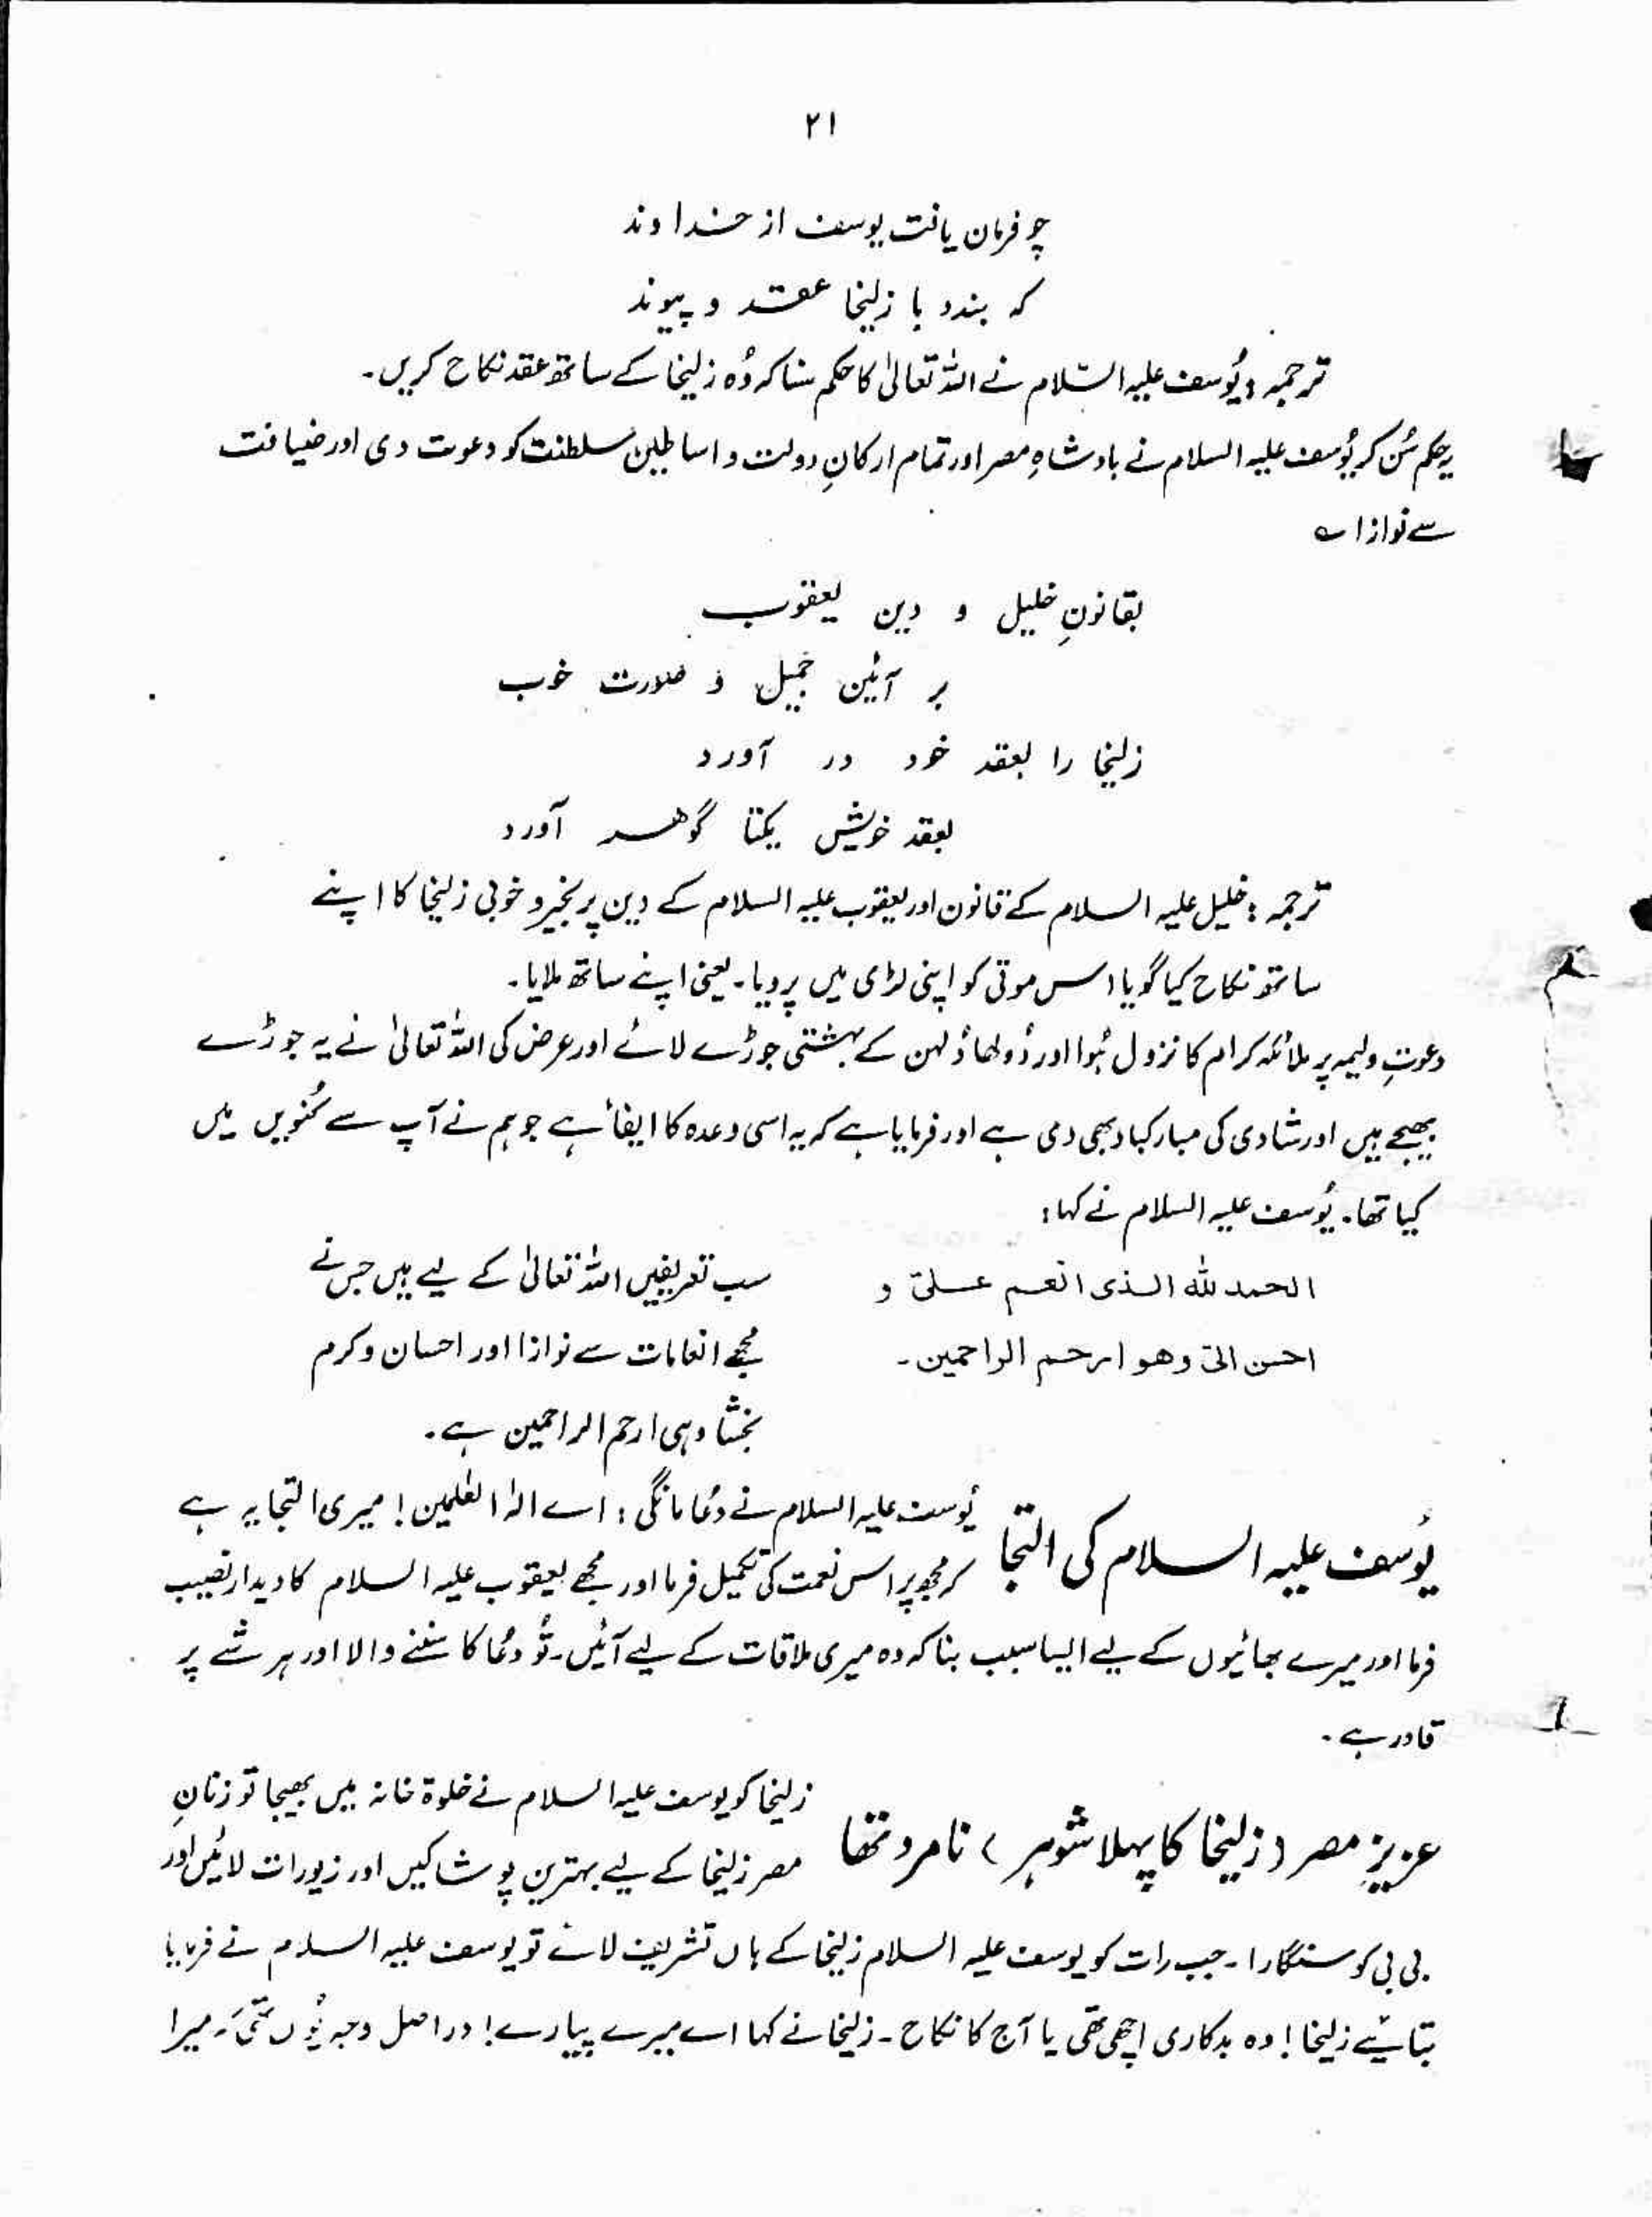 ۲۱
چو فرمان یافت یوسف از خداوند
کہ بندد با زلیخا عقد و پیوند
ترجمہ: یُوسف علیہ السّلام نے اللہ تعالیٰ کا حکم سنا کہ وُہ زلیخا کے ساتھ عقد نکاح کریں۔
یہ حکم سُن کر یُوسف علیہ السلام نے بادشاہِ مصر اور تمام ارکانِ دولت و اساطین سلطنت کو دعوت دی اور ضیافت
سے نوازا ؎
بقانونِ خلیل و دین یعقوب
بر آئین جمیل و صورت خوب
زلیخا را بعقد خود در آورد
بعقد خویش یکتا گوھر آورد
ترجمہ: خلیل علیہ السلام کے قانون اور یعقوب علیہ السلام کے دین پر بخیر و خوبی زلیخا کا اپنے
ساتھ نکاح کیا گویا اس موتی کو اپنی لڑی میں پرویا۔ یعنی اپنے ساتھ ملایا۔
دعوتِ ولیمہ پر ملائکہ کرام کا نزول ہُوا اور دُولھا دُلہن کے بہشتی جوڑے لائے اور عرض کی اللہ تعالیٰ نے یہ جوڑے
بھیجے ہیں اور شادی کی مبارکباد بھی دی ہے اور فرمایا ہے کہ یہ اسی وعدہ کا ایفاٴ ہے جو ہم نے آپ سے کُنویں میں
کیا تھا۔ یُوسف علیہ السلام نے کہا:
الحمد للّٰہ الذی انعم علیّ و سب تعریفیں اللہ تعالیٰ کے لیے ہیں جس نے
احسن الیّ وھو ارحم الراحمین۔ مجھے انعامات سے نوازا اور احسان وکرم
بخشا وہی ارحم الراحمین ہے۔
یُوسف علیہ السلام کی التجا یُوسف علیہ السلام نے دُعا مانگی: اے الٰہ العٰلمین! میری التجا یہ ہے
کہ مجھ پر اس نعمت کی تکمیل فرما اور مجھے یعقوب علیہ السلام کا دیدار نصیب
فرما اور میرے بھائیوں کے لیے ایسا سبب بنا کہ وہ میری ملاقات کے لیے آئیں۔ تُو دُعا کا سننے والا اور ہر شے پر
قادر ہے۔
عزیزِ مصر (زلیخا کا پہلا شوہر) نامرد تھا زلیخا کو یوسف علیہ السلام نے خلوۃ خانہ میں بھیجا تو زنانِ
مصر زلیخا کے لیے بہترین پوشاکیں اور زیورات لائیں اور
بی بی کو سنگارا۔ جب رات کو یوسف علیہ السلام زلیخا کے ہاں تشریف لائے تو یوسف علیہ السلام نے فرمایا
بتائیے زلیخا! وہ بدکاری اچھی تھی یا آج کا نکاح۔ زلیخا نے کہا اے میرے پیارے! دراصل وجہ یُوں تھی کہ میرا